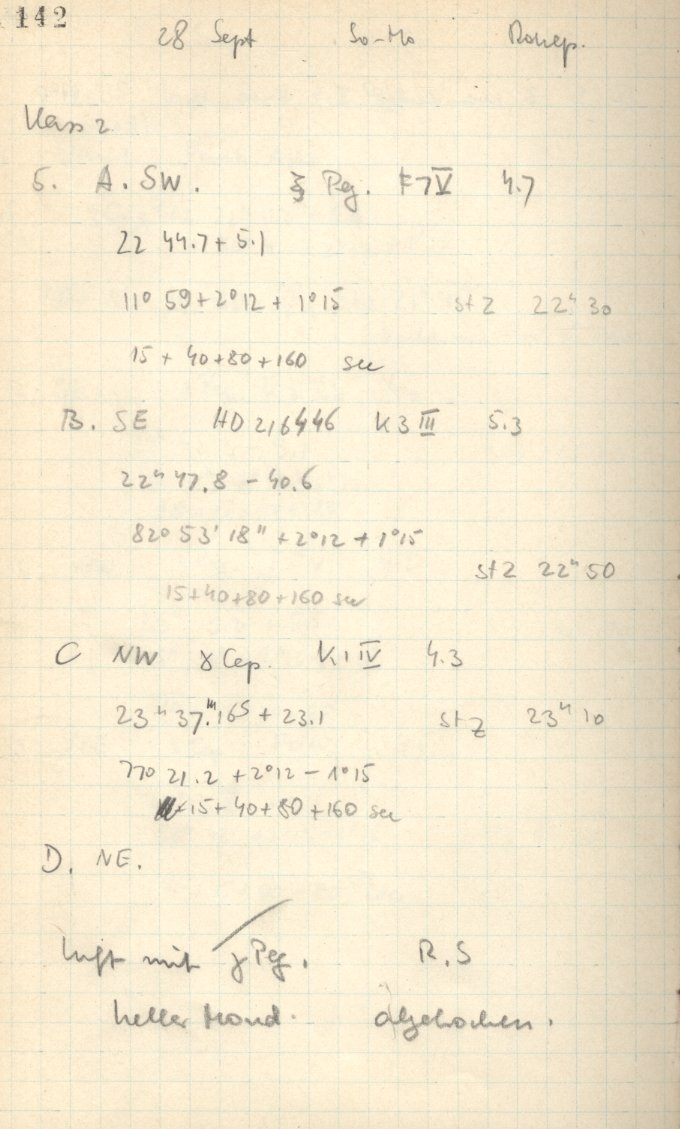 142
28 Sept So-Mo
Klasse 2
5. A. SW. ξ Peg. F7V 4.7
22 44.7 + 5.1
11° 59 + 2°12 + 1°15 stz 22ʰ 30
15 + 40 + 80 + 160 sec
B. SE HD 216446 K3III 5.3
22ʰ 47.8 - 40.6
82° 53' 18" + 2°12 + 1°15
stz 22ʰ 50
15 + 40 + 80 + 160 sec
C NW γ Cep. K1IV 4.3
23ʰ 37.ᵐ16ˢ + 23.1 stz 23ʰ 10
77° 21.2 + 2°12 - 1°15
15 + 40 + 80 + 160 sec
D. NE.
Luft mit γ Peg. R.S
heller Mond. abgebrochen.